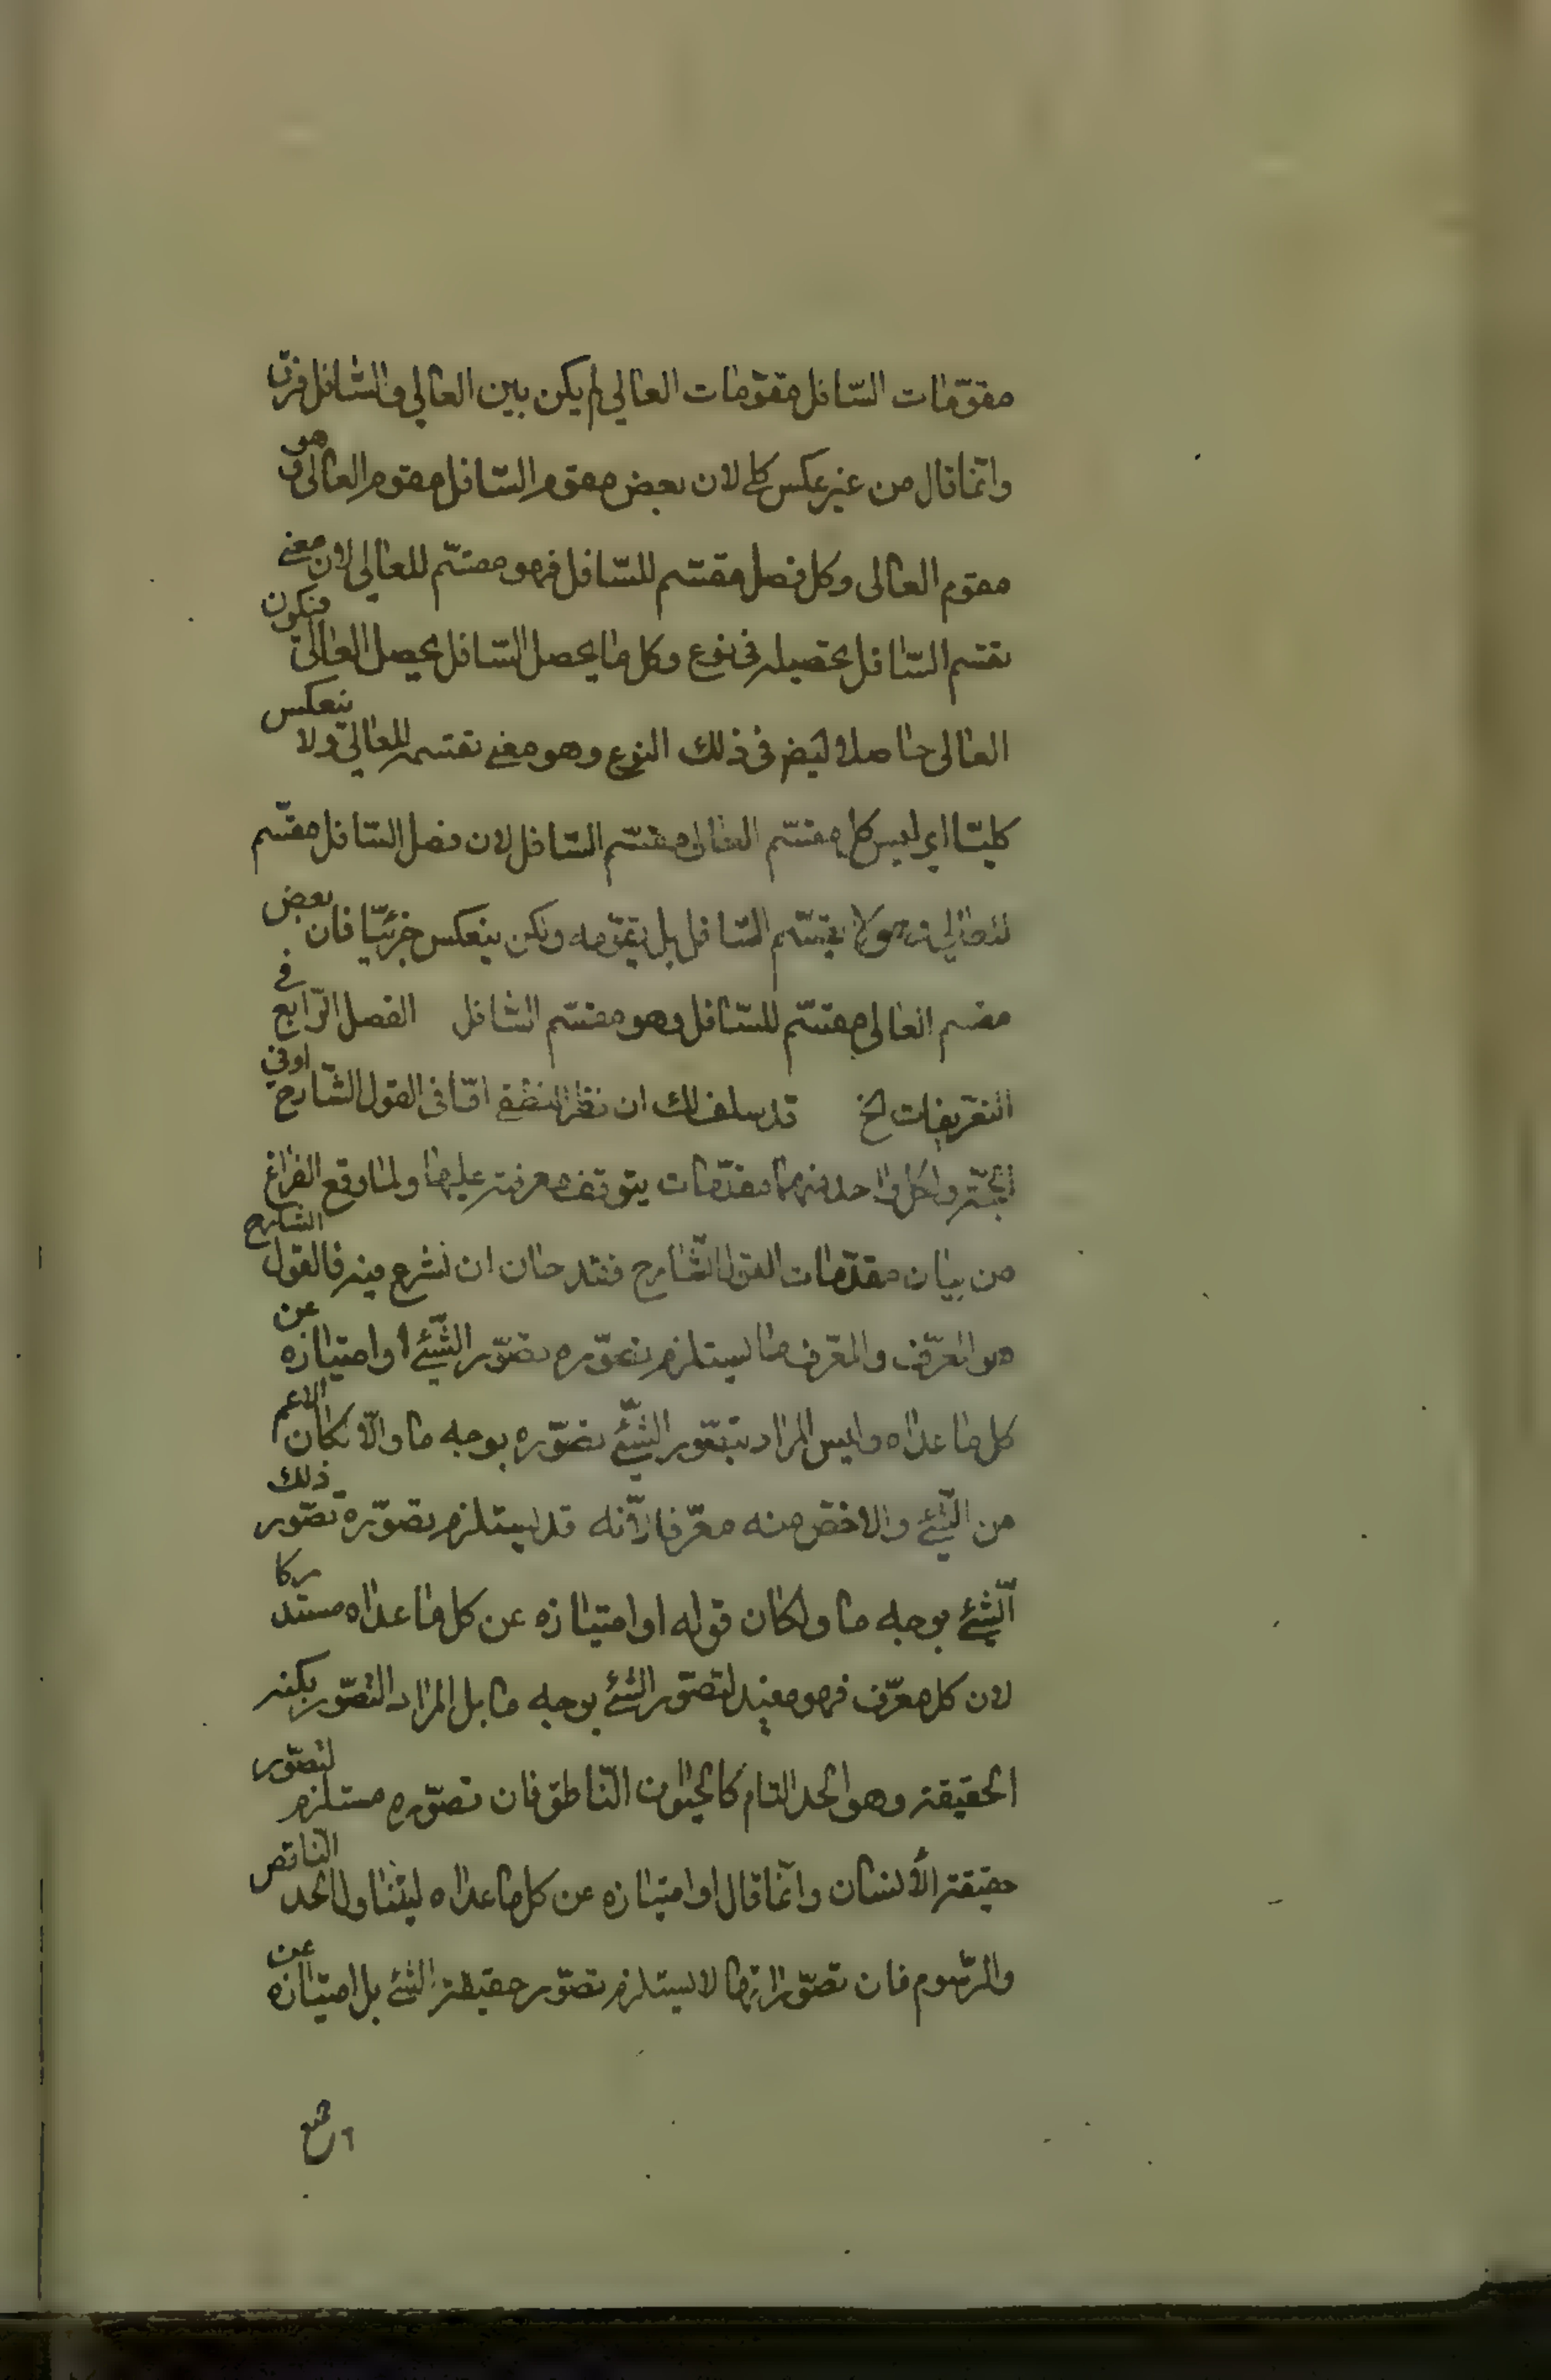 مقوّمات السّافل مقوّمات العالي لم يكن بين العالي والسّافل فرق
وانّما قال من غير عكس كلي لان بعض مقوم السّافل مقوم العالي وهو
مقوم العالى وكل فصل مقسّم للسّافل فهو مقسّم للعالى لان معنى
تقسيم السّافل تحصيله فى نوع وكل ما يحصل السّافل يحصل العالى فيكون
العالى حاصلا ايضا فى ذلك النوع وهو معنى تقسيمه للعالى ولا ينعكس
كليّا اى ليس كل مقسّم العالى مقسّم السّافل لان فصل السّافل مقسّم
للعالى وهو لا يقسّم السّافل بل يقوّمه ولكن ينعكس جزئيّا فان بعض
مقسم العالى مقسّم للسّافل وهو مقسّم السّافل الفصل الرّابع فى
التعريفات الخ قد سلف لك ان نظر المنطقى امّا فى القول الشّارح او فى
الحجّة ولكل واحد منهما مقدّمات يتوقف معرفته عليها ولما وقع الفراغ
من بيان مقدّمات القول الشّارح فقد حان ان نشرع فيه فالقول الشارح
هو المعرّف والمعرّف ما يستلزم تصوّره تصوّر الشّئ او امتيازه عن
كل ما عداه وليس المراد بتصّور الشّئ تصوّره بوجه ما والّا لكان الاعم
من الشّئ والاخصّ منه معرّفا لانّه قد يستلزم تصوّره تصّور ذلك
الشّئ بوجه ما ولكان قوله او امتيازه عن كل ما عداه مستدركا
لان كل معرّف فهو مفيد لتصوّر الشئ بوجه ما بل المراد التصّور بكنه
الحقيقة وهو الحد التام كالحيوان النّاطق فان تصوّره مستلزم لتصّور
حقيقة الأنسان وانّما قال او امتيازه عن كل ما عداه ليتناول الحد النّاقص
والرّسوم فان تصوّراتها لا يستلزم تصوّر حقيقة الشّئ بل امتيازه عن